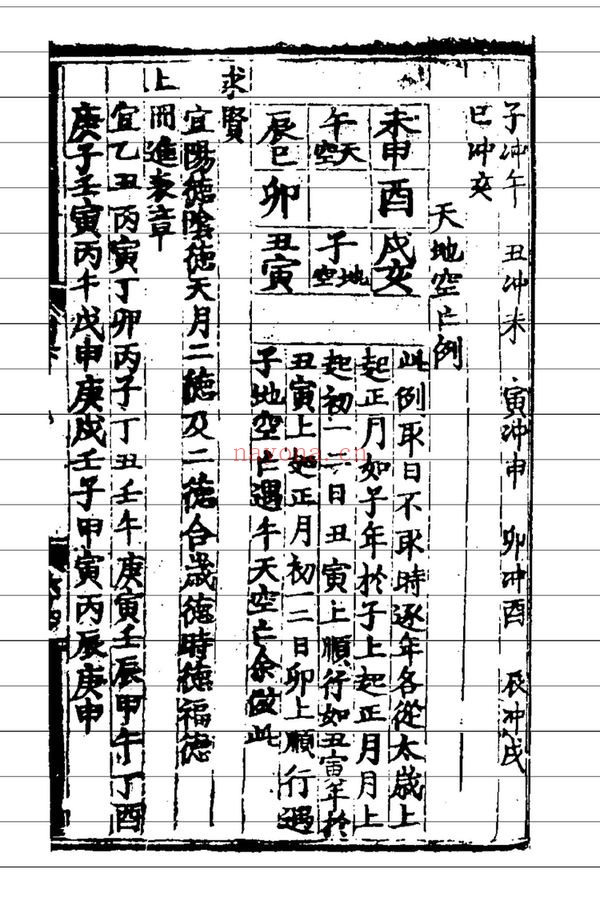 子冲午 丑冲未 寅冲申 卯冲酉 辰冲戌
巳冲亥
天地空亡例
未申 酉 戌亥
午 天空 子 地空
辰巳 卯 丑寅
此例取日不取時逐年各從太歲上
起正月如子年於子上起正月月上
起初一二日丑寅上順行如丑寅年於
丑寅上起正月初一二日卯上順行遇
子地空亡遇午天空亡余倣此
求賢
宜陽德陰德天月二德及二德合歲德時德福德
上冊進表章
宜乙丑丙寅丁卯丙子丁丑壬午庚寅壬辰甲午丁酉
庚子壬寅丙午戊申庚戌壬子甲寅丙辰庚申
nayona.cn